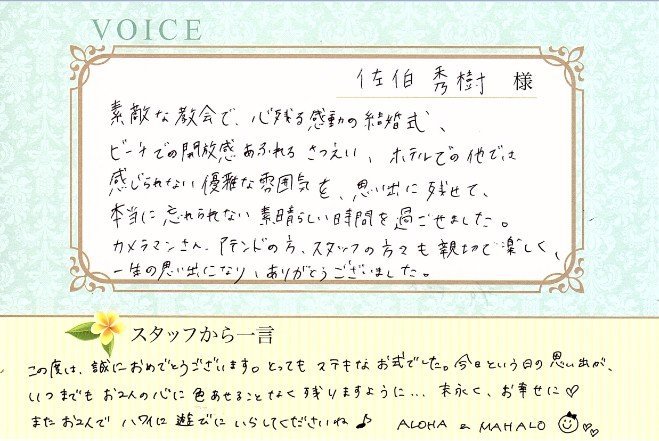 VOICE
佐伯 秀樹 様
素敵な教会で、心残る感動の結婚式、
ビーチでの開放感あふれる さつえい、ホテルでの他では
感じられない優雅な雰囲気を、思い出に残せて、
本当に忘れられない素晴らしい時間を過ごせました。
カメラマンさん、アテンドの方、スタッフの方々も親切で楽しく、
一生の思い出になり、ありがとうございました。
スタッフから一言
この度は、誠におめでとうございます。とっても ステキな お式でした。今日という日の思い出が、
いつまでも お2人の心に 色あせることなく 残りますように… 末永く、お幸せに♡
また お2人で ハワイに 遊びに いらしてくださいね♪ ALOHA & MAHALO ♡♡